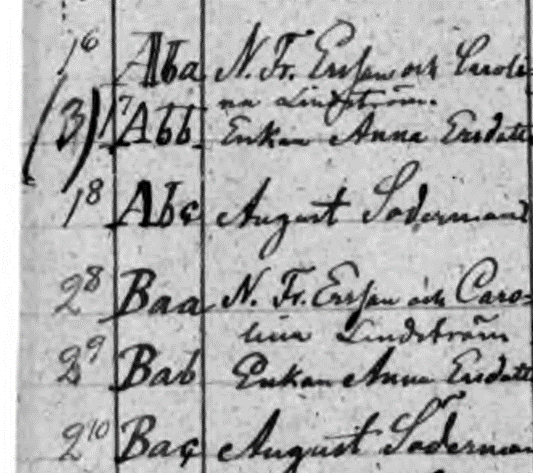 1⁶ Aba N. Fr. Ersson och Caroli-
na Lindström.
(3) 1⁷ Abb Enkan Anna Ersdott
1⁸ Abc August Söderman
2⁸ Baa N. Fr. Ersson och Caro-
lina Lindström
2⁹ Bab Enkan Anna Ersdott
2¹⁰ Bac August Söderman